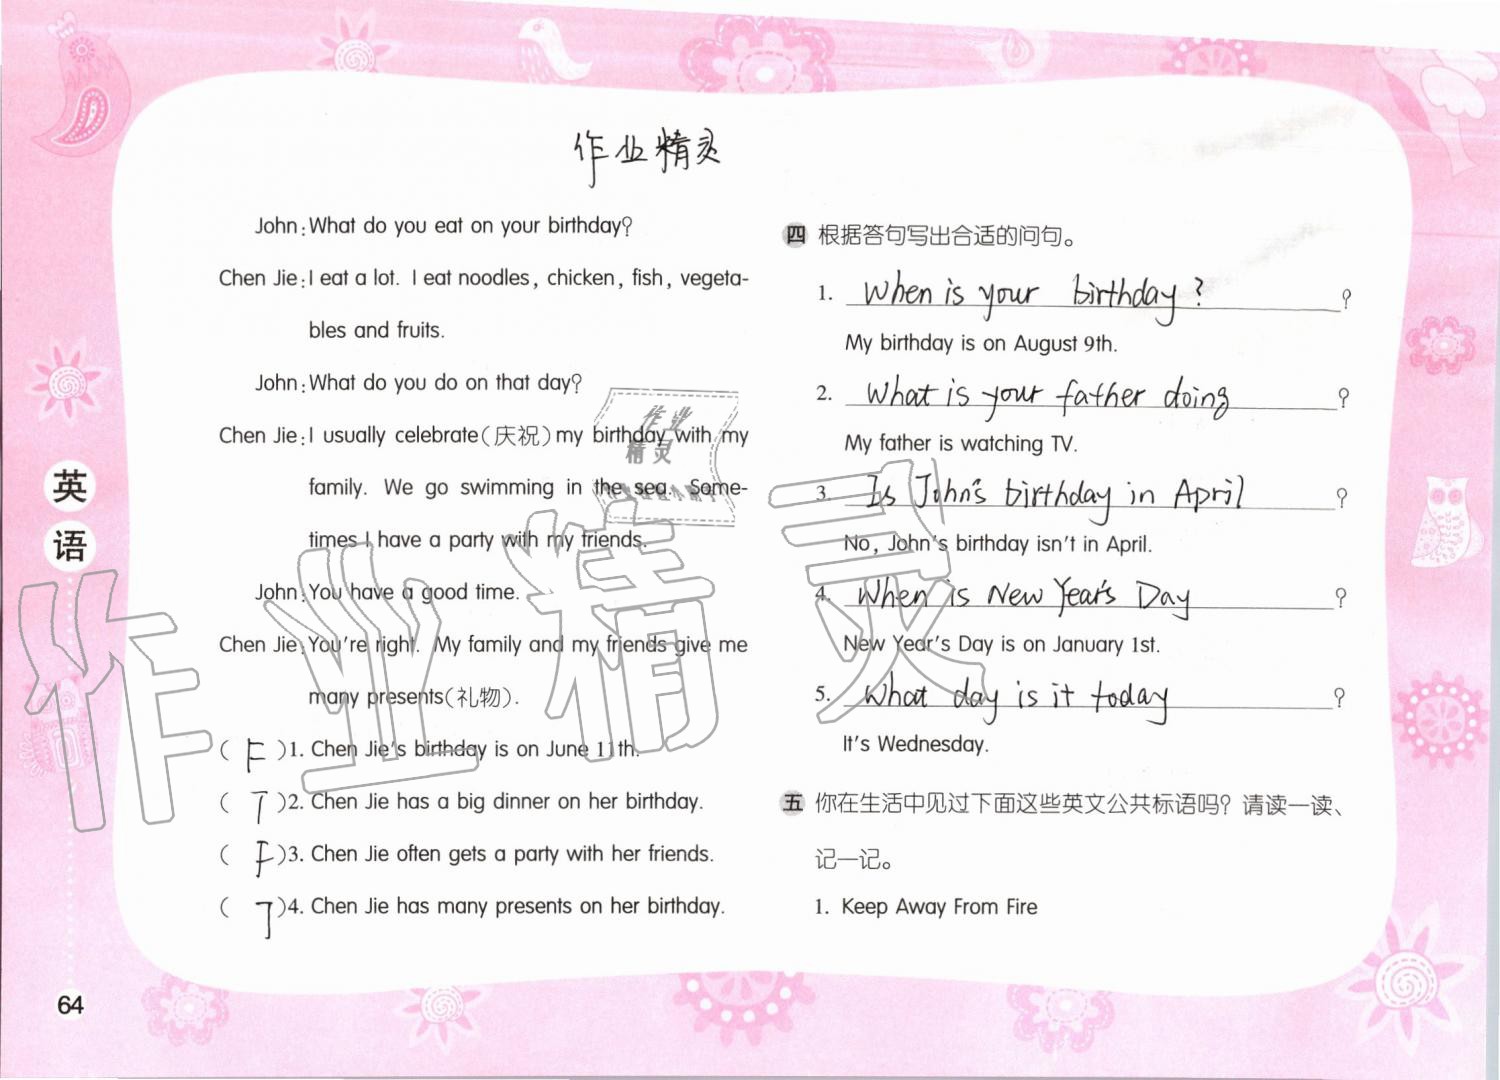 作业精灵
John: What do you eat on your birthday?
Chen Jie: I eat a lot. I eat noodles, chicken, fish, vegeta-
bles and fruits.
John: What do you do on that day?
Chen Jie: I usually celebrate(庆祝)my birthday with my
family. We go swimming in the sea. Some-
times I have a party with my friends.
John: You have a good time.
Chen Jie: You're right. My family and my friends give me
many presents(礼物).
( F )1. Chen Jie's birthday is on June 11th.
( T )2. Chen Jie has a big dinner on her birthday.
( F )3. Chen Jie often gets a party with her friends.
( T )4. Chen Jie has many presents on her birthday.
四 根据答句写出合适的问句。
1. When is your birthday? ?
My birthday is on August 9th.
2. What is your father doing ?
My father is watching TV.
3. Is John's birthday in April ?
No, John's birthday isn't in April.
4. When is New Year's Day ?
New Year's Day is on January 1st.
5. What day is it today ?
It's Wednesday.
五 你在生活中见过下面这些英文公共标语吗？请读一读、
记一记。
1. Keep Away From Fire
英
语
64
作业
精灵
作业精灵